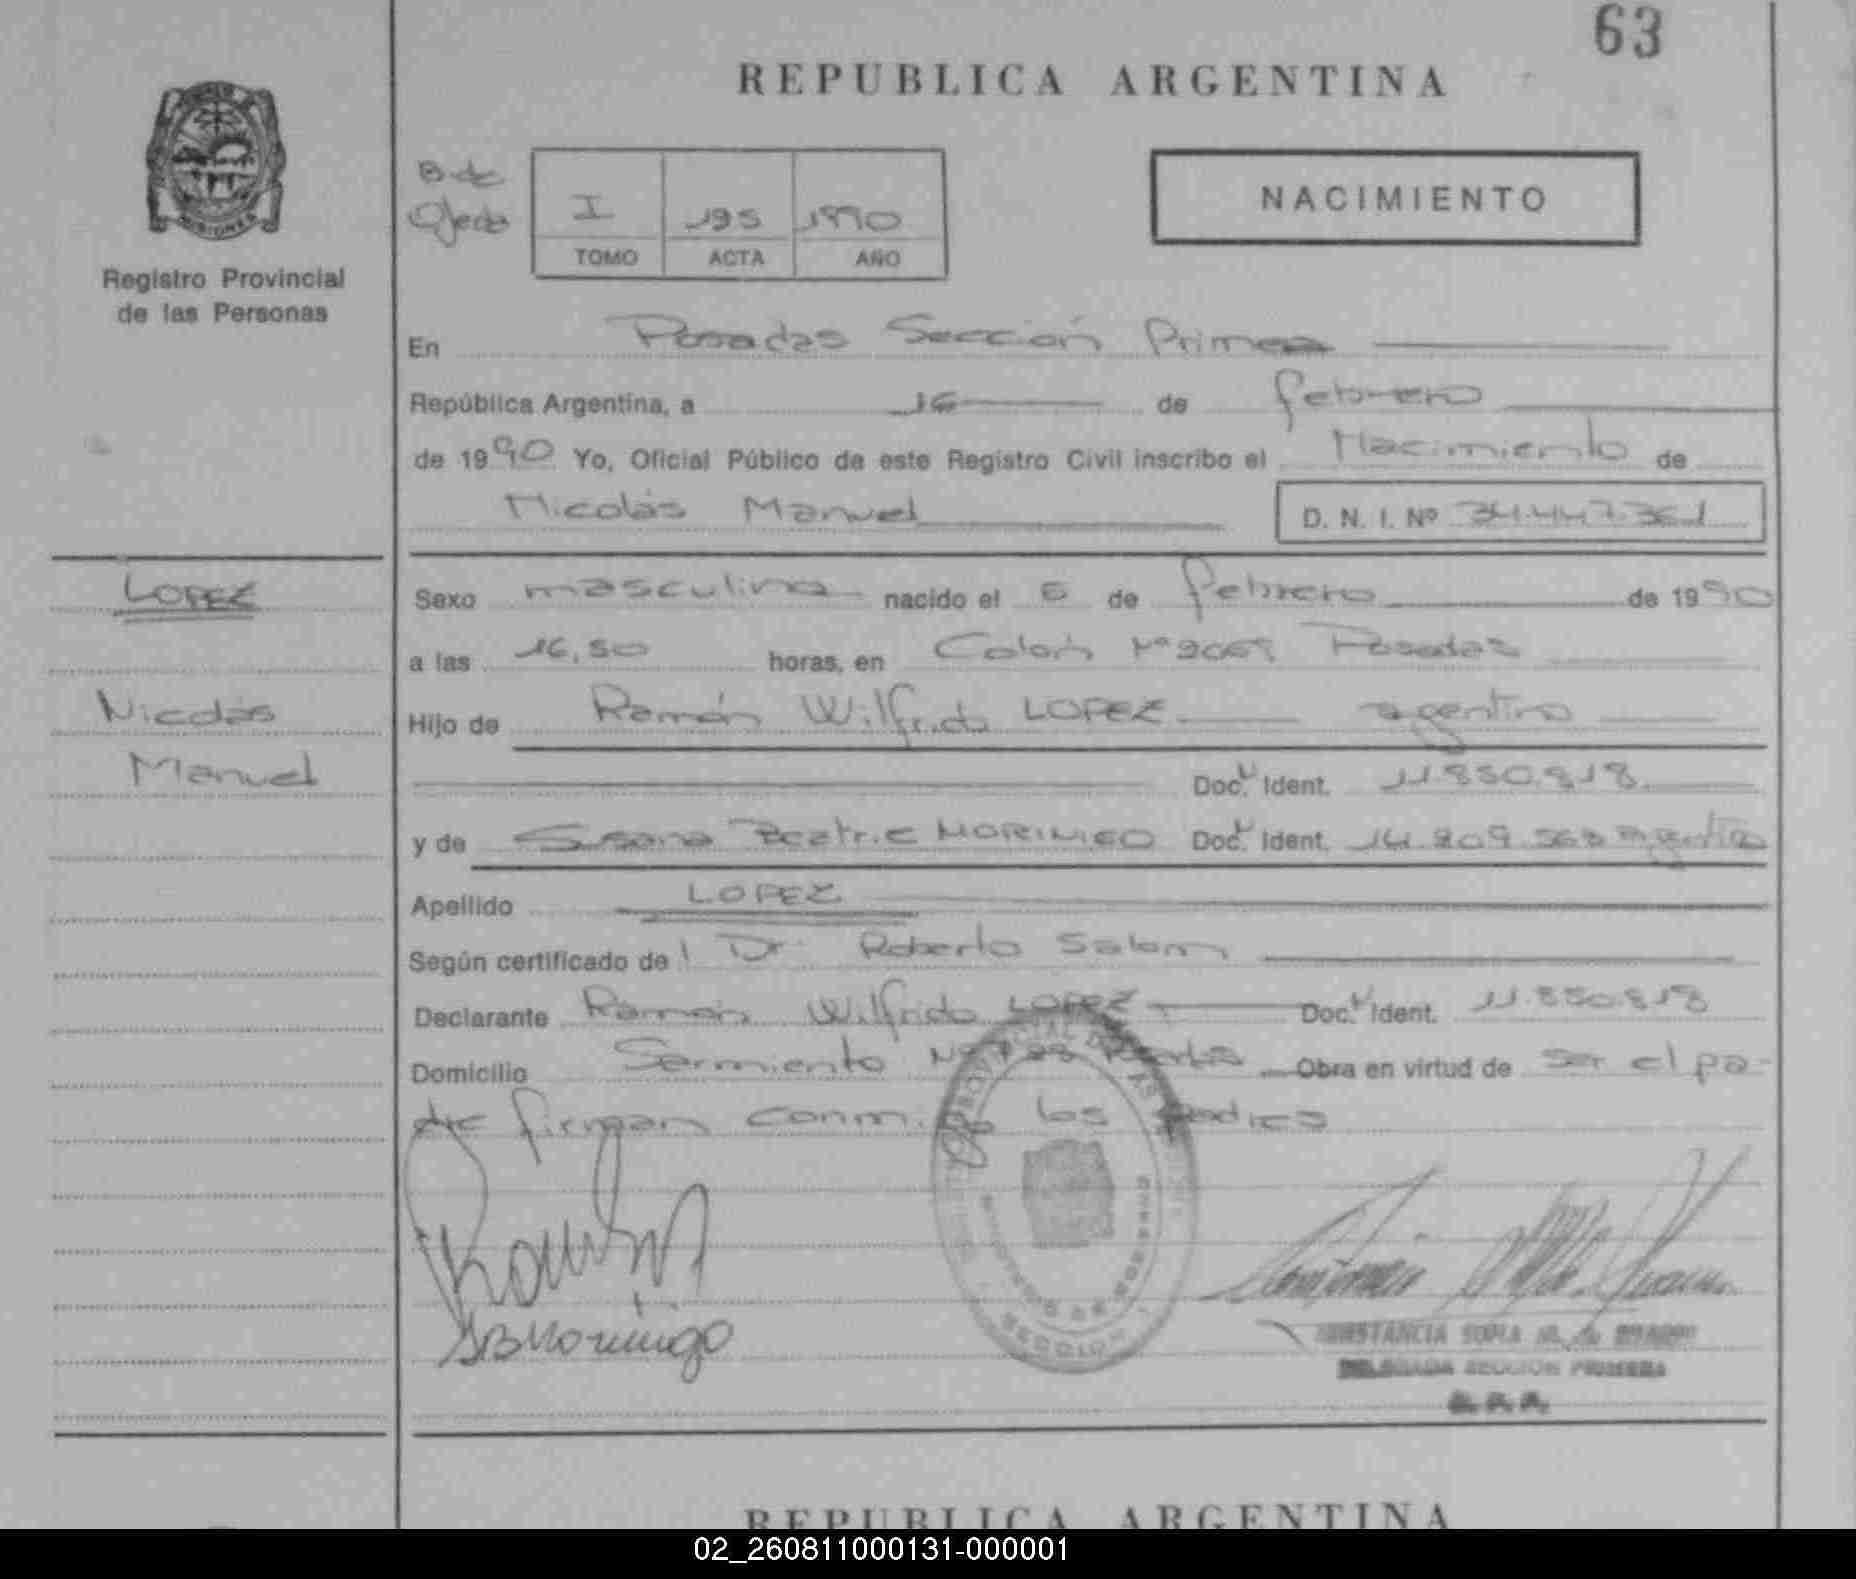 63
REPUBLICA ARGENTINA
I 195 1990
TOMO ACTA AÑO
NACIMIENTO
MISIONES
Registro Provincial
de las Personas
En Posadas Sección Primera
República Argentina, a 16 de febrero
de 1990 Yo, Oficial Público de este Registro Civil inscribo el Nacimiento de
Nicolás Manuel D. N. I. Nº 34.447.361
LOPEZ
Nicolás
Manuel
Sexo masculino nacido el 6 de febrero de 1990
a las 16,50 horas, en Colón Nº Posadas
Hijo de Ramón Wilfrido LOPEZ argentino
Doc. Ident. 11.850.818
y de Susana Beatriz Doc. Ident. 14.209.568 argentina
Apellido LOPEZ
Según certificado de l Dr. Roberto Salom
Declarante Ramón Wilfrido LOPEZ Doc. Ident. 11.850.818
Domicilio Sarmiento Obra en virtud de ser el pa-
dre firman conmigo los padres
SBMoringo
DELEGADA SECCION PRIMERA
REPUBLICA ARGENTINA
02_260811000131-000001